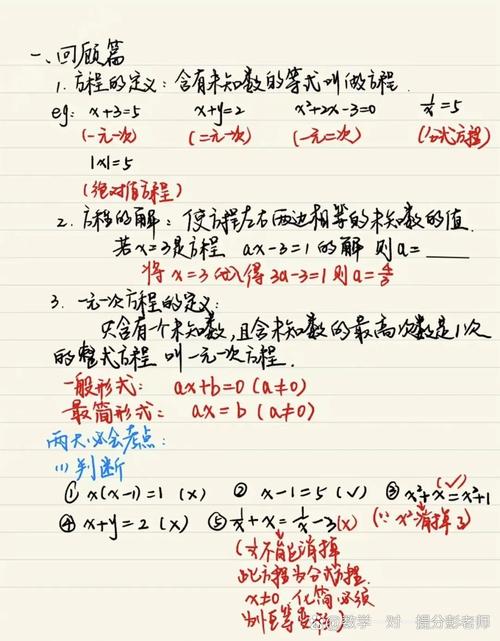 一、回顾篇
1. 方程的定义：含有未知数的等式叫做方程.
eg: x+3=5 x+y=2 x²+2x-3=0 1/x=5
(一元一次) (二元一次) (一元二次) (分式方程)
|x|=5
(绝对值方程)
2. 方程的解：使方程左右两边相等的未知数的值.
若x=3是方程 ax-3=1的解 则a=____
将 x=3代入得 3a-3=1 则a=4/3
3. 一元一次方程的定义：
只含有一个未知数，且含未知数的最高次数是1次
的整式方程 叫一元一次方程.
一般形式： ax+b=0 (a≠0)
最简形式： ax=b (a≠0)
两大必会考点：
(1) 判断
① x(x-1)=1 (x) ② x-1=5 (√) ③ x²+x=x²+1 (√)
④ x+y=2 (x) ⑤ 1/x+x=1/x-3 (x) (∵ x²消掉了)
(1/x不能消掉
此方程为分式方程.
x≠0. 化简必须
为恒等变形
@数学一对一提分彭老师